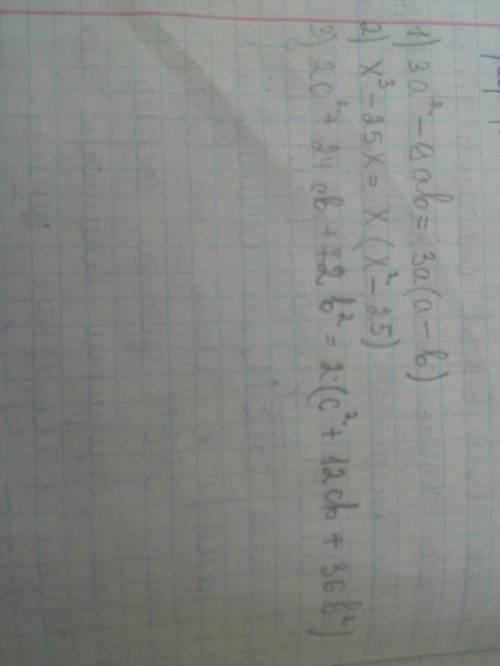 1) 3a² - 9ab = 3a(a - b)
2) x³ - 25x = x(x² - 25)
3) 2c² + 24cb + 72b² = 2·(c² + 12cb + 36b²)